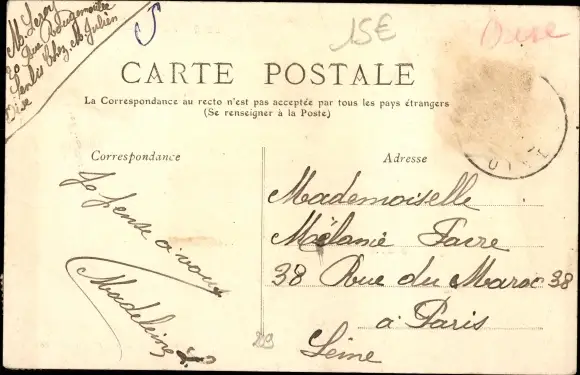 M. Leroy
20 Rue
Senlis Chez M. Julien
Oise
15€
Oise
CARTE POSTALE
La Correspondance au recto n'est pas acceptée par tous les pays étrangers
(Se renseigner à la Poste)
Correspondance
Je pense a vous
Madeleine
Adresse
Mademoiselle
Mélanie Favre
38 Rue du Maroc 38
a Paris
Seine